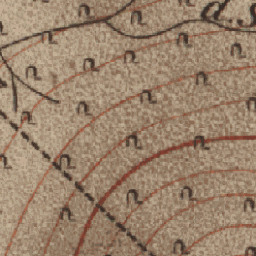 d. S